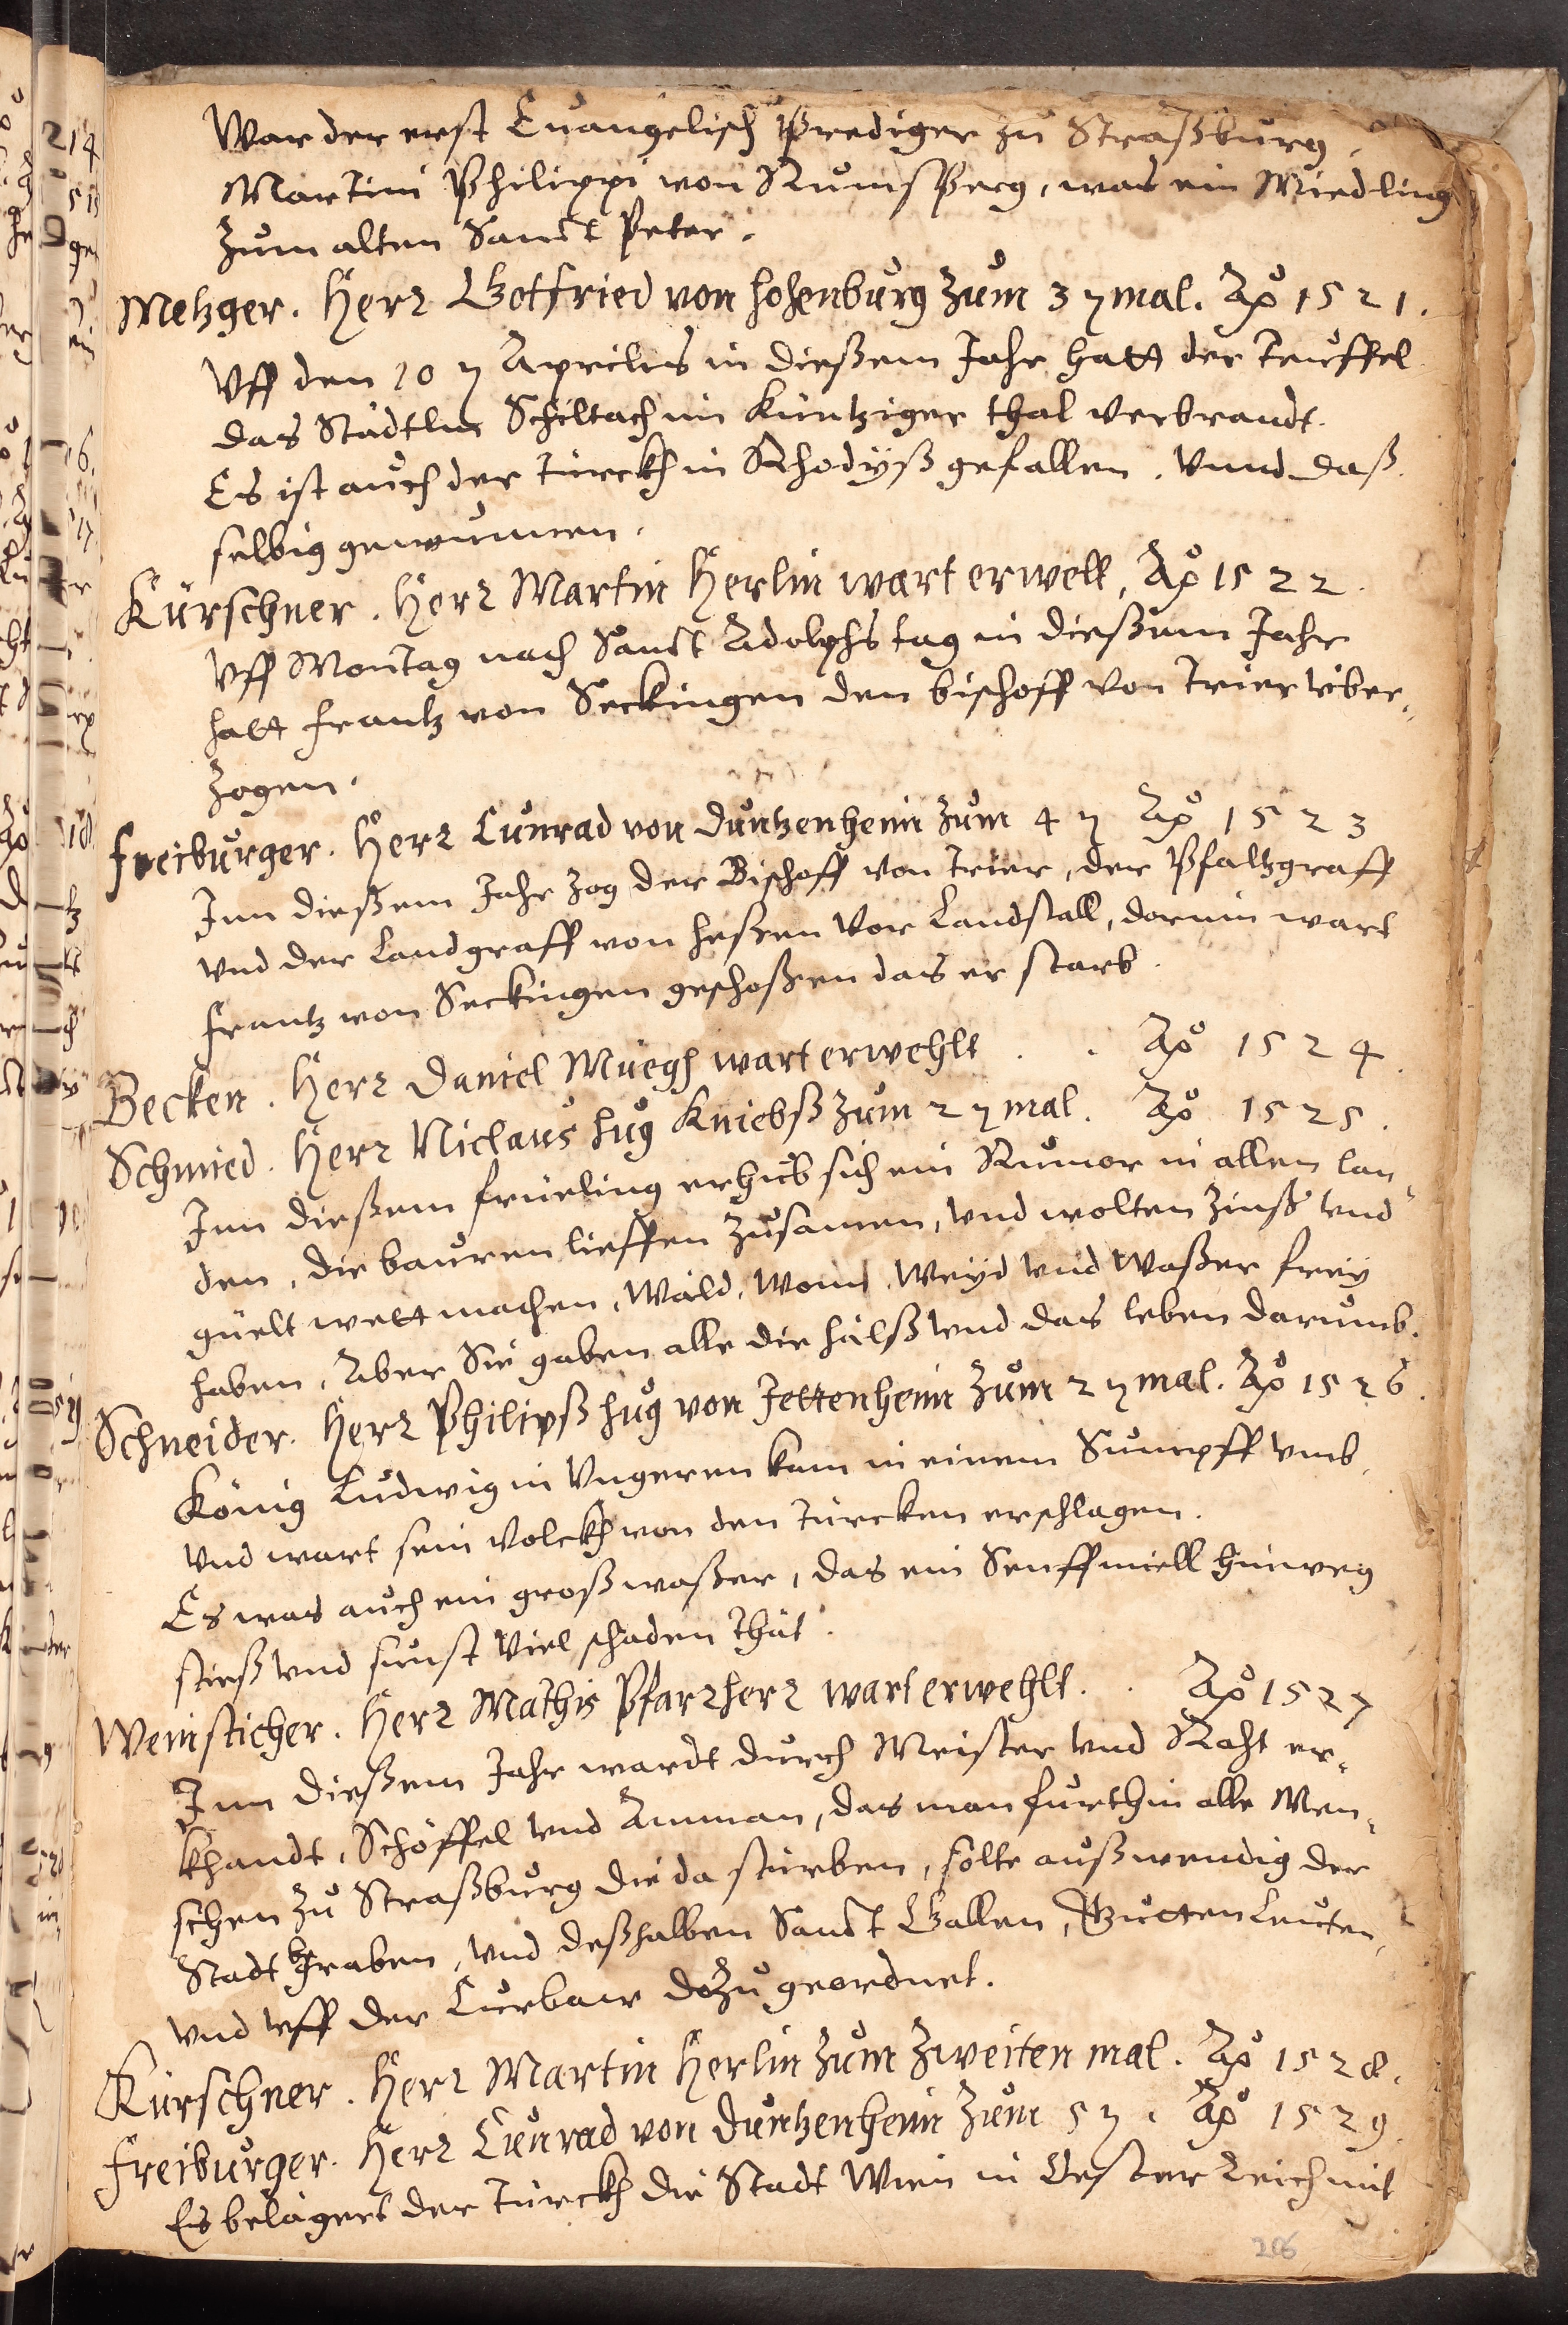 War der erst Euangelisch Prediger zu Straßburg,
Martini Philippi von Rumsperg, was ein Miedling
zum alten Sanct Peter.
Metzger. Herr Gotfried von Hohenburg zum 3 ꝫ mal. Aō 1521.
Vff den 10 ꝫ Aprilis in dießem Jahr hatt der Teuffel
das Städtlin Schiltach im Küntziger thal verbrandt.
Es ist auch der Türckh in Rhodyß gefallen. Vnnd daß
selbig gewunnen.
Kürschner. Herr Martin Herlin wart erwelt, Aō 1522.
Vff Montag nach Sanct Adolphs tag in dießem Jahr
hatt Frantz von Seckingen den bischoff von Trier über-
zogen.
Freiburger. Herr Cunrad von Duntzenheim zum 4 ꝫ Aō 1523
Inn dießem Jahr zog der Bischoff von Trier, der Pfaltzgraff
vnd der Landgraff von Heßen vor Landstall, darinn wart
Frantz von Seckingen geschoßen das er starb.
Becken. Herr Daniel Müegh wart erwehlt . . Aō 1524.
Schmied. Herr Niclaus Hug Kniebß zum 2 ꝫ mal. Aō 1525.
Inn dießem früeling erhub sich ein Rumor in allen lan-
den, die bauren lieffen zusamen, vnd wolten zinß vnd
güelt wett machen, Wäld, Wonn, Weyd vnd Waßer frey
haben, Aber Sie gaben alle die hälß vnd das leben darumb.
Schneider. Herr Philipß Hug von Jettenheim zum 2 ꝫ mal. Aō 1526.
König Ludwig in Vngeren kam in einem Sumpff vmb,
vnd wart sein Volckh von den Türcken erschlagen.
Es was auch ein groß waßer, das ein Senffmiell hinweg
stieß vnd sunst viel schaden thät.
Weinsticher. Herr Mathis Pfarrherr wart erwehlt. . Aō 1527
Inn dießem Jahr wardt durch Meister vnd Raht er-
khandt, Schöffel vnd Amman, das man furthin alle Men-
schen zu Straßburg die da sturben, solte außwendig der
Stadt begraben, vnd deßhalben Sanct Gallen, Gutten Leuten,
vnd vff der Curbaw dozu geordnet.
Kürschner. Herr Martin Herlin zum zweiten mal. Aō 1528.
Freiburger. Herr Cunrad von Duntzenheim zum 5 ꝫ. Aō 1529.
Es belägert der Türckh die Stadt Wien in Oesterreich mit
206